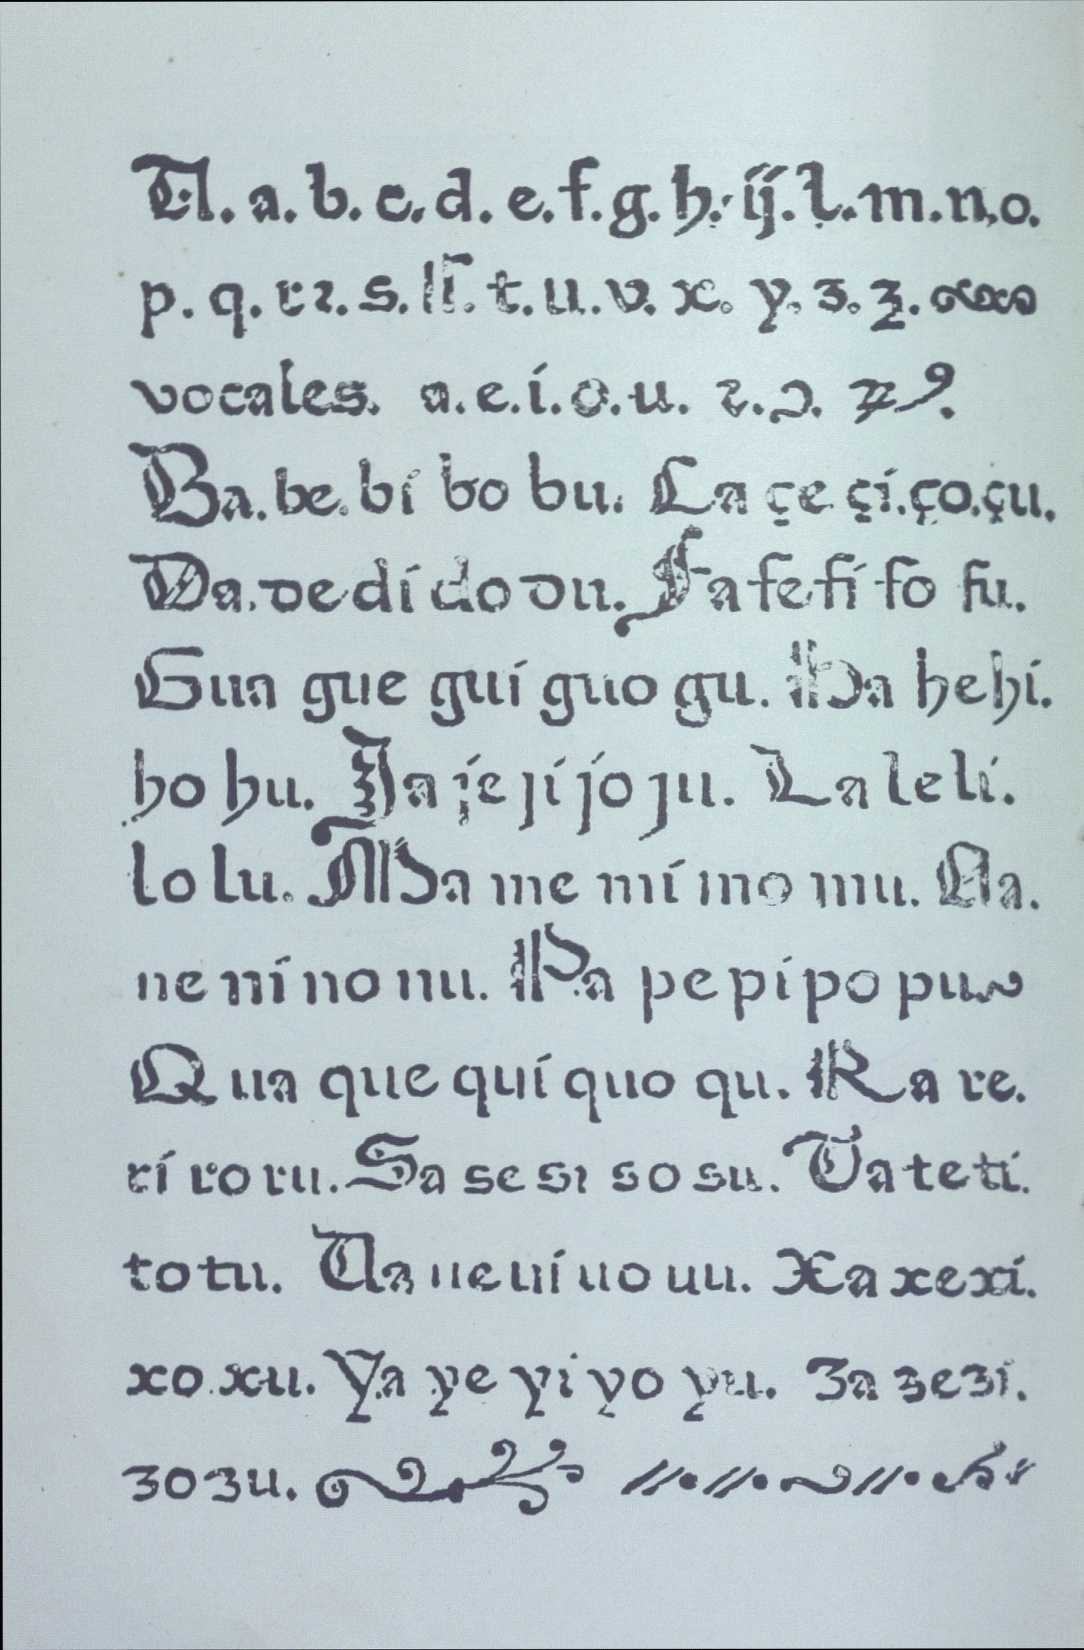 A. a. b. c. d. e. f. g. h. ij. l. m. n. o.
p. q. r ꝛ. s. ſſ. t. u. v. x. y. ʒ. ʒ.
vocales. a. e. i. o. u. ꝛ. ɔ.
Ba. be. bi bo bu. Ca çe çi. ço. çu.
Da. de di do du. Fa fe fi fo fu.
Gua gue gui guo gu. Ha he hi.
ho hu. Ja je ji jo ju. La le li.
lo lu. Ma me mi mo mu. Na.
ne ni no nu. Pa pe pi po pu
Qua que qui quo qu. Ra re.
ri ro ru. Sa se si so su. Ta te ti.
to tu. Ua ue ui uo uu. Xa xe xi.
xo. xu. Ya ye yi yo yu. Ʒa ʒe ʒi.
ʒo ʒu.